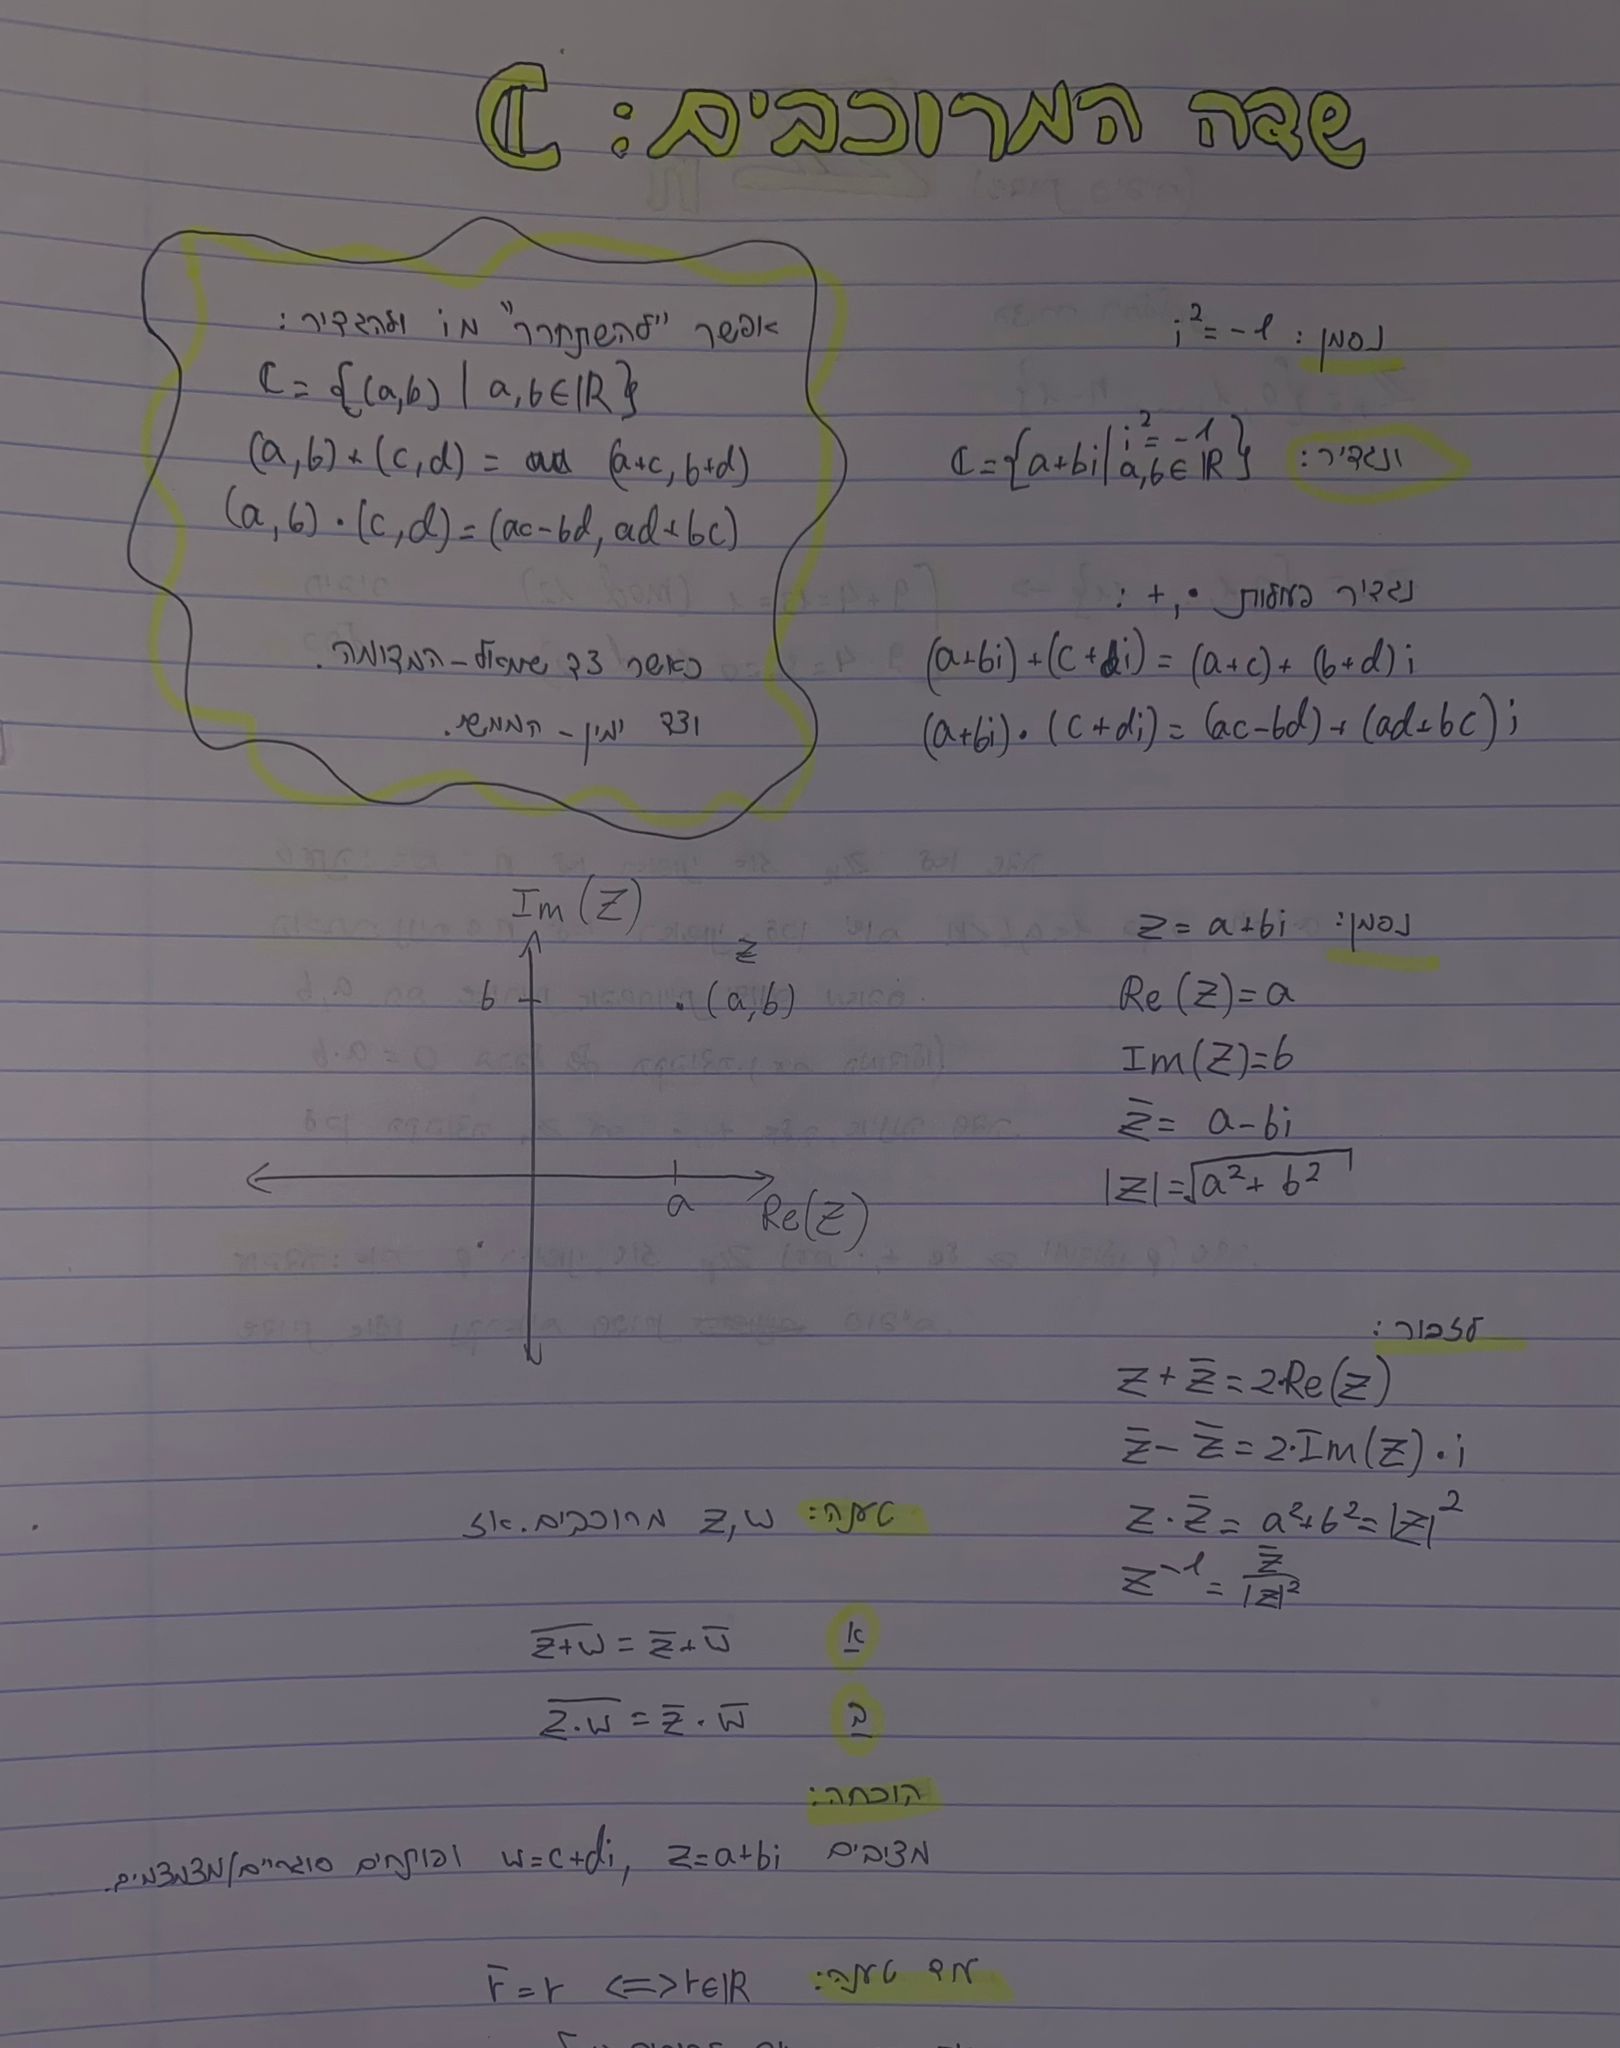 שדה המרוכבים: ℂ
נסמן: i² = -1
ונגדיר: ℂ = {a+bi | i² = -1, a,b ∈ ℝ}
נגדיר פעולות ·,+ :
(a+bi) + (c+di) = (a+c) + (b+d)i
(a+bi) · (c+di) = (ac-bd) + (ad+bc)i
אפשר "להשתחרר" מ i ולהגדיר:
ℂ = {(a,b) | a,b ∈ ℝ}
(a,b) + (c,d) = (a+c, b+d)
(a,b) · (c,d) = (ac-bd, ad+bc)
כאשר צד שמאל - המדומה.
וצד ימין - הממשי.
נסמן: z = a+bi
Re(z) = a
Im(z) = b
z̄ = a-bi
|z| = √(a²+b²)
Im(z)
z
b
(a,b)
a
Re(z)
לזכור:
z + z̄ = 2·Re(z)
z̄ - z̄ = 2·Im(z)·i
z · z̄ = a²+b² = |z|²
z⁻¹ = z̄/|z|²
טענה: z,w מרוכבים. אז
א \overline{z+w} = z̄ + w̄
ב \overline{z·w} = z̄ · w̄
הוכחה:
מציבים z=a+bi, w=c+di ופותחים סוגריים/מצמצמים.
עוד טענה: r̄ = r <=> r∈ℝ